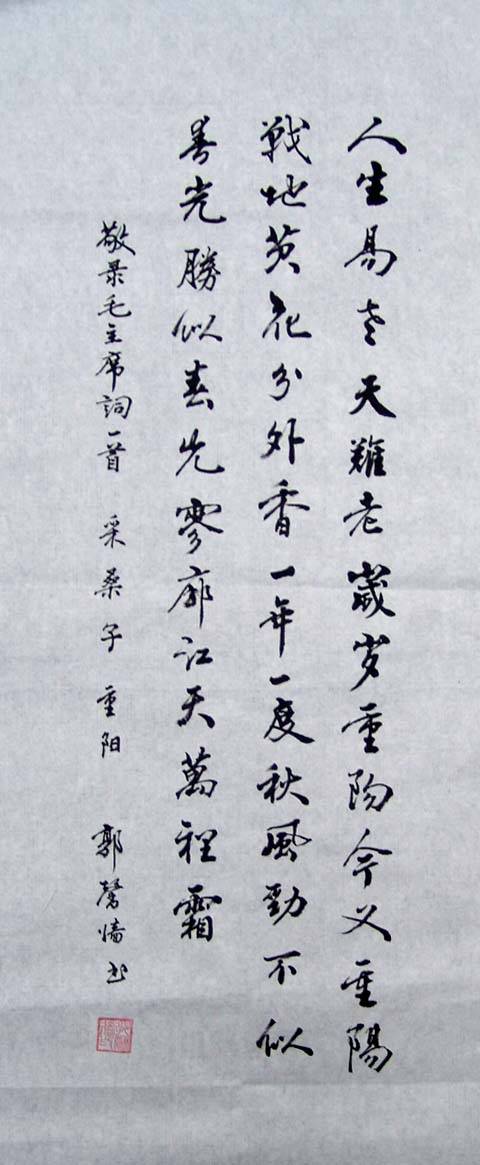 人生易老天難老歲岁重陽今又重陽
戰地黄花分外香一年一度秋風勁不似
春光勝似春光寥廓江天萬裡霜
敬录毛主席詞一首 采桑子 重阳 郭馨 书